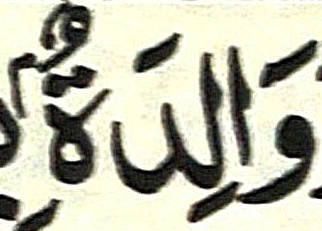 وَالِدَةُۢ